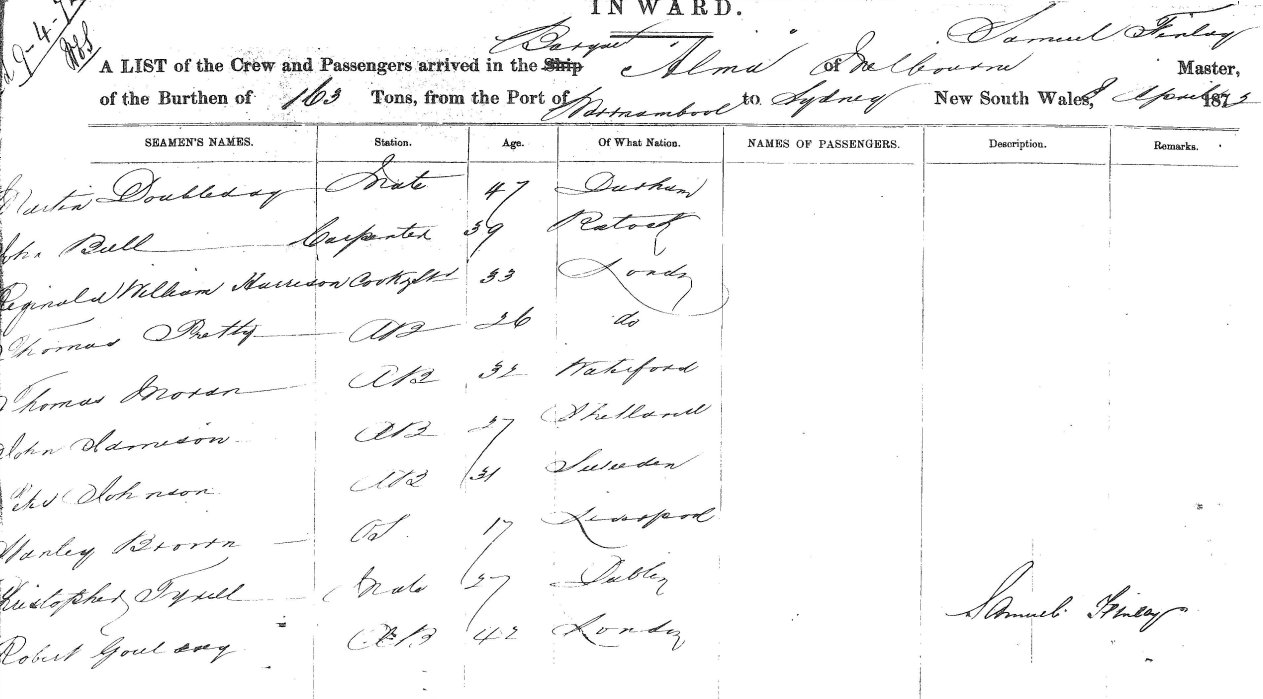 INWARD.
9-4-7
A LIST of the Crew and Passengers arrived in the Ship Barque Alma of Melbourne Samuel Finlay Master,
of the Burthen of 163 Tons, from the Port of Warrnambool to Sydney New South Wales, April 187
SEAMEN'S NAMES. Station. Age. Of What Nation. NAMES OF PASSENGERS. Description. Remarks.
Martin Doubleday Mate 47 Durham
John Bull Carpenter 39
Reginald William Harrison Cook & Std 33 London
Thomas Pretty AB 26 do
Thomas Moran AB 32 Waterford
John Jameson AB 27 Shetland
Johnson AB 31 Sweden
Stanley Brown OS 17 Liverpool
Christopher Tyrell Mate 27 Dublin
Samuel Finlay
Robert AB 42 London